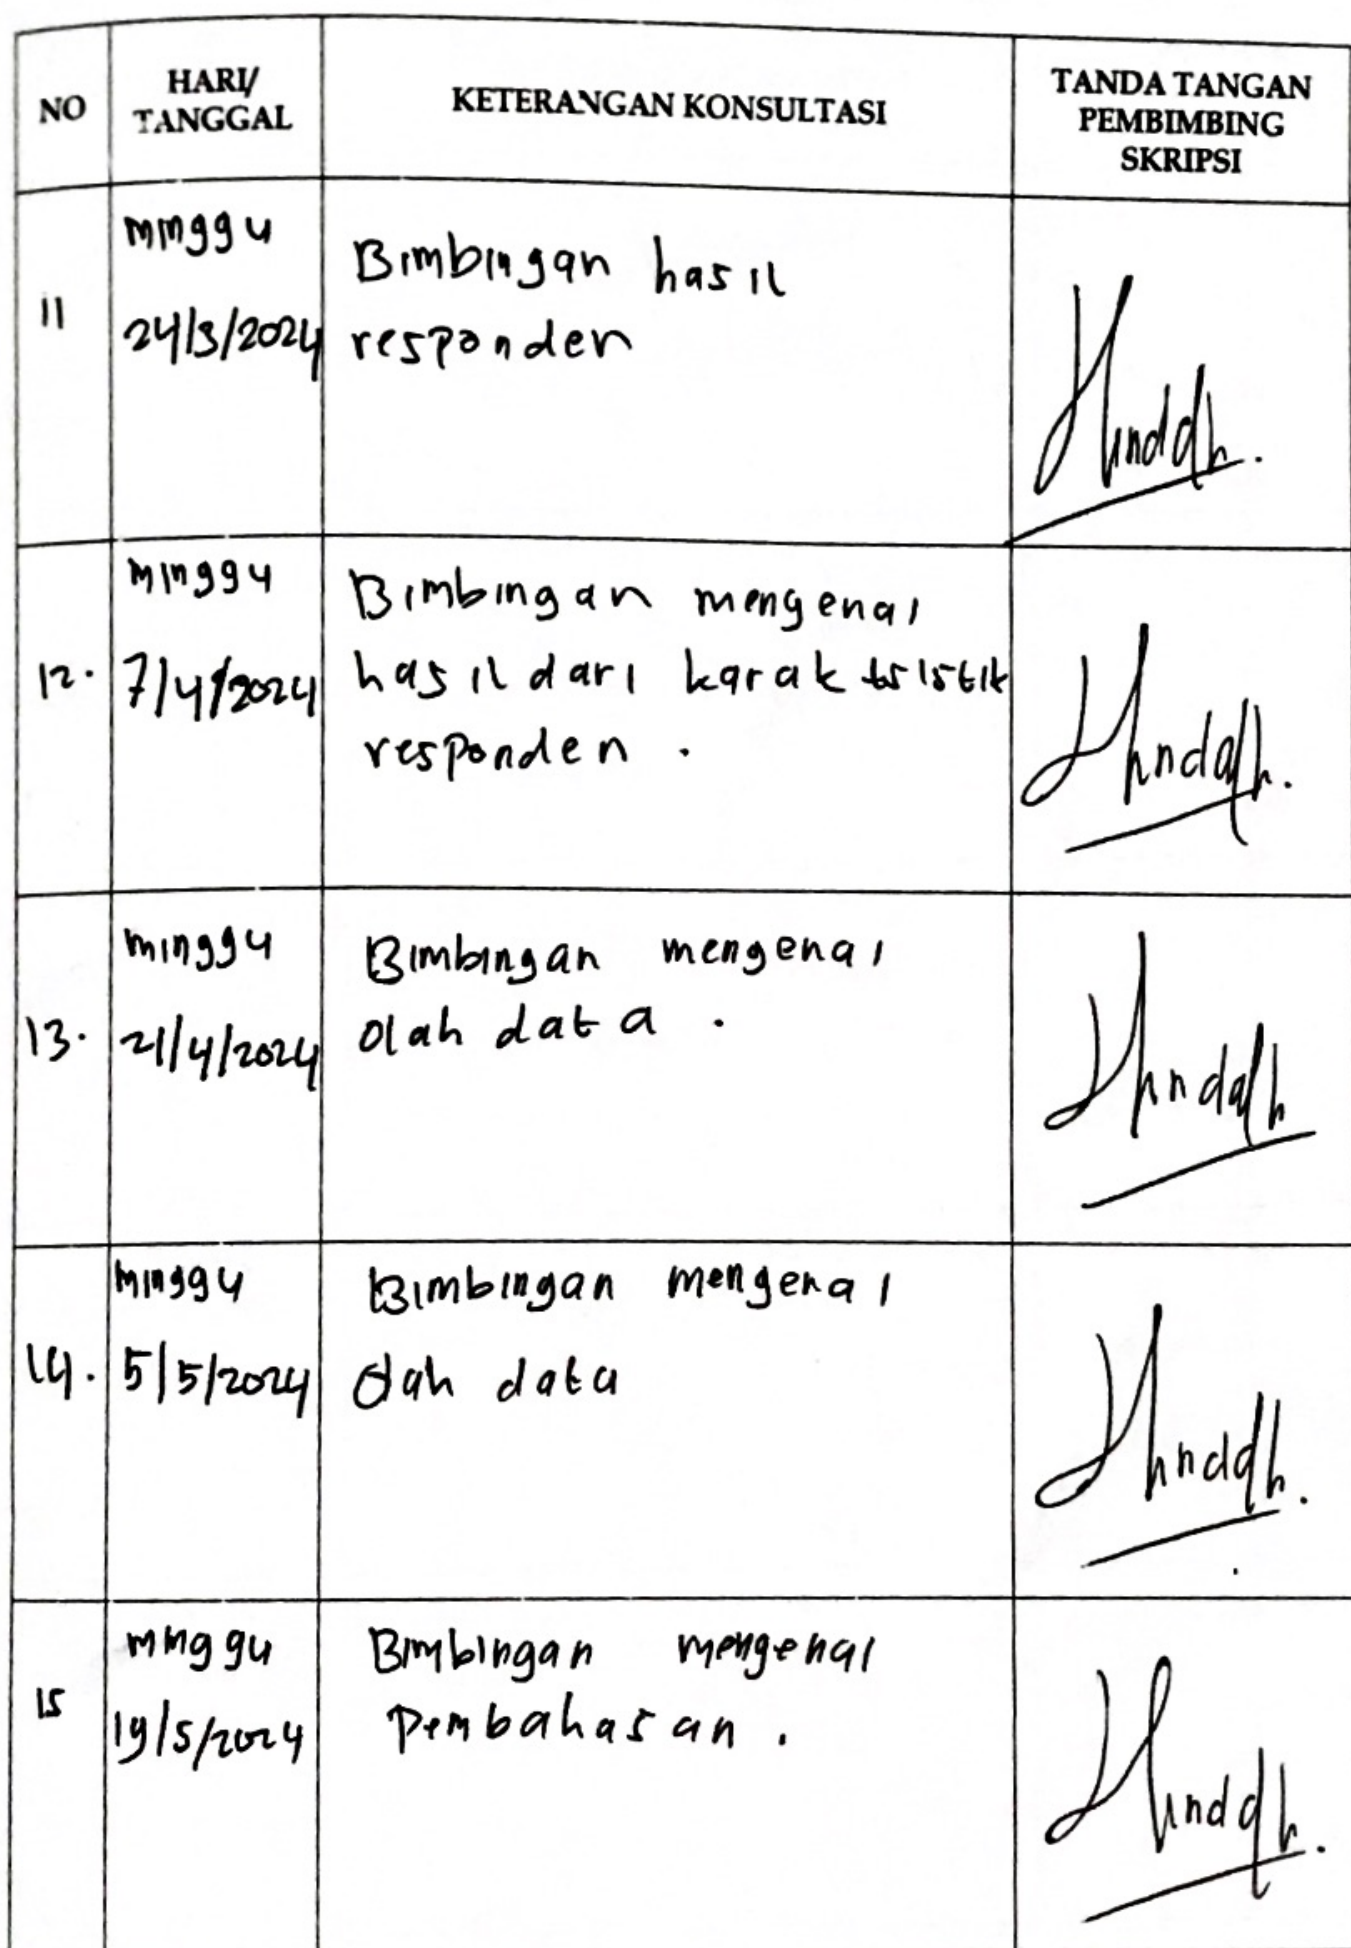 NO
HARI/
TANGGAL
KETERANGAN KONSULTASI
TANDA TANGAN
PEMBIMBING
SKRIPSI
11
minggu
24/3/2024
Bimbingan hasil
responden
12.
minggu
7/4/2024
Bimbingan mengenai
hasil dari karaktristik
responden .
13.
minggu
21/4/2024
Bimbingan mengenai
olah data .
14.
minggu
5/5/2024
Bimbingan mengenai
olah data
15
minggu
19/5/2024
Bimbingan mengenai
pembahasan .